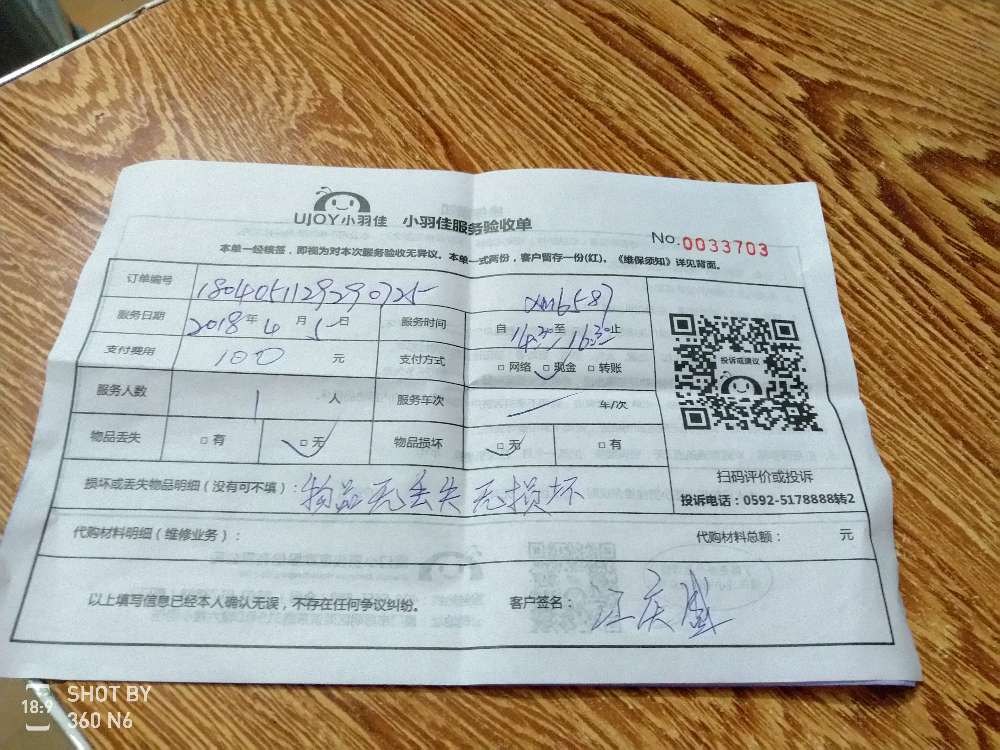 UJOY小羽佳 小羽佳服务验收单
No.0033703
本单一经核签，即视为对本次服务验收无异议。本单一式两份，客户留存一份(红)。《维保须知》详见背面。
订单编号 1804051129290725 xm6587
服务日期 2018年4月5日 服务时间 自14:30至16:30止
支付费用 100 元 支付方式 □网络 □现金 □转账
服务人数 1 人 服务车次 车/次
物品丢失 □有 □无 物品损坏 □无 □有
投诉或建议
扫码评价或投诉
投诉电话：0592-5178888转2
损坏或丢失物品明细（没有可不填）：物品无丢失无损坏
代购材料明细（维修业务）： 代购材料总额： 元
以上填写信息已经本人确认无误，不存在任何争议纠纷。 客户签名：江庆盛
18:9 SHOT BY
360 N6